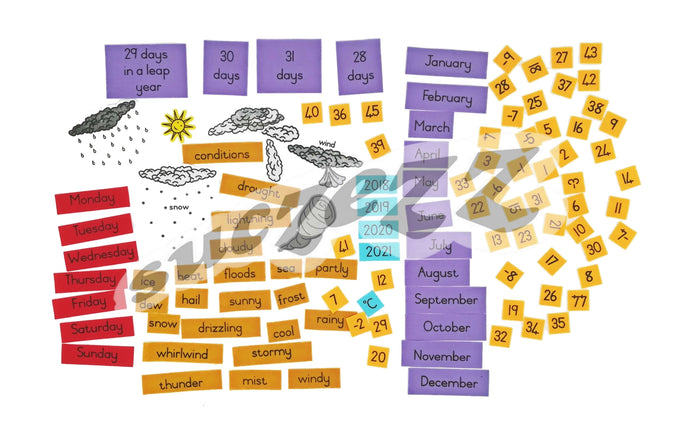 29 days
in a leap
year
30
days
31
days
28
days
wind
snow
conditions
drought
lightning
cloudy
ice
heat
floods
sea
partly
dew
hail
sunny
frost
snow
drizzling
cool
rainy
whirlwind
stormy
thunder
mist
windy
Monday
Tuesday
Wednesday
Thursday
Friday
Saturday
Sunday
40
36
45
39
2018
2019
2020
2021
41
12
7
°C
-2
29
20
January
February
March
April
May
June
July
August
September
October
November
December
27
43
28
25
37
42
-7
5
16
38
9
3
2
24
33
22
31
6
14
10
30
17
8
26
77
19
32
34
35